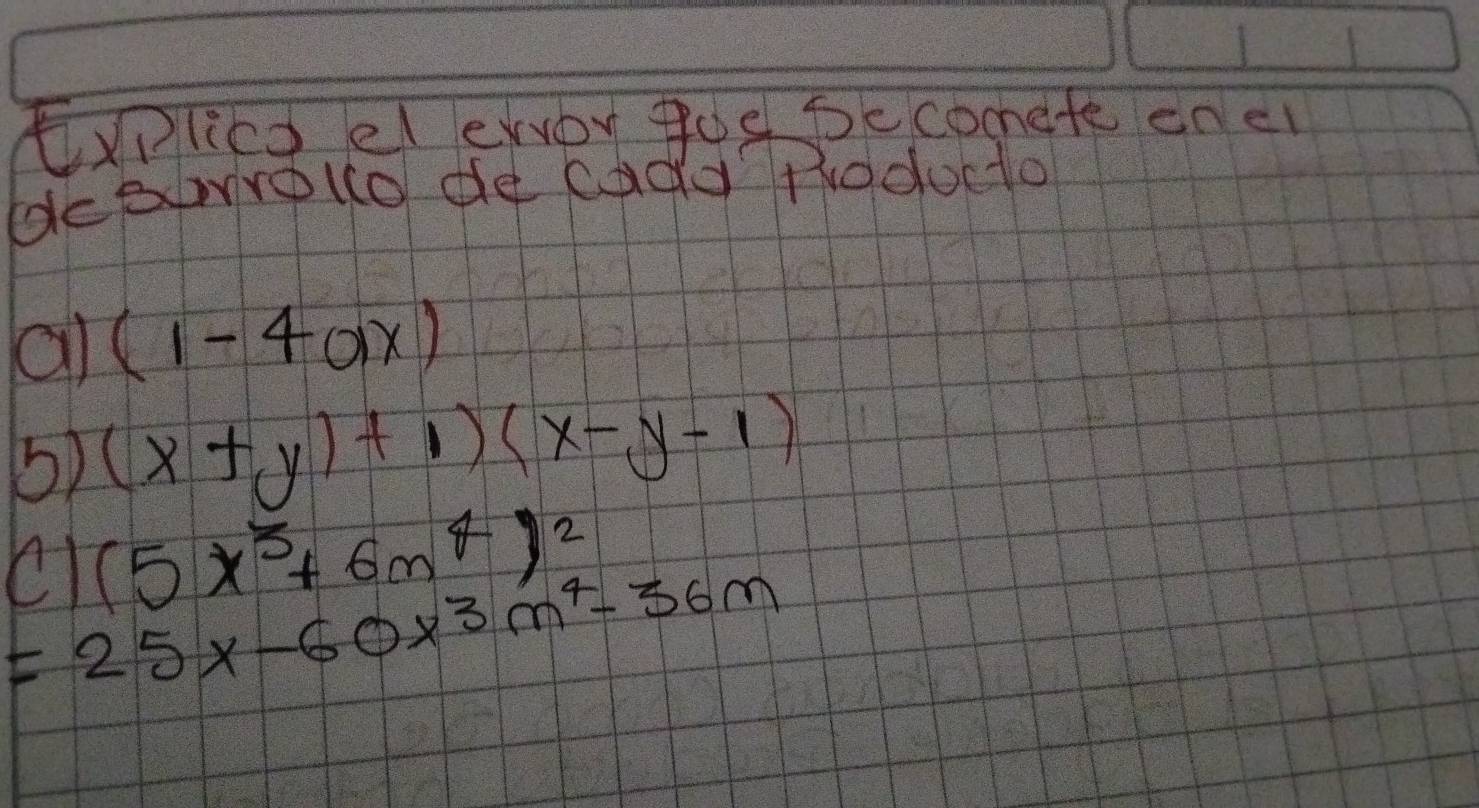 Explica el error que se comete en el
desarrollo de cada Producto
a) (1 - 4ax)
b) (x + y) + 1) (x - y - 1)
c) (5x³ + 6m⁴)²
= 25x - 60x³m⁴ - 36m